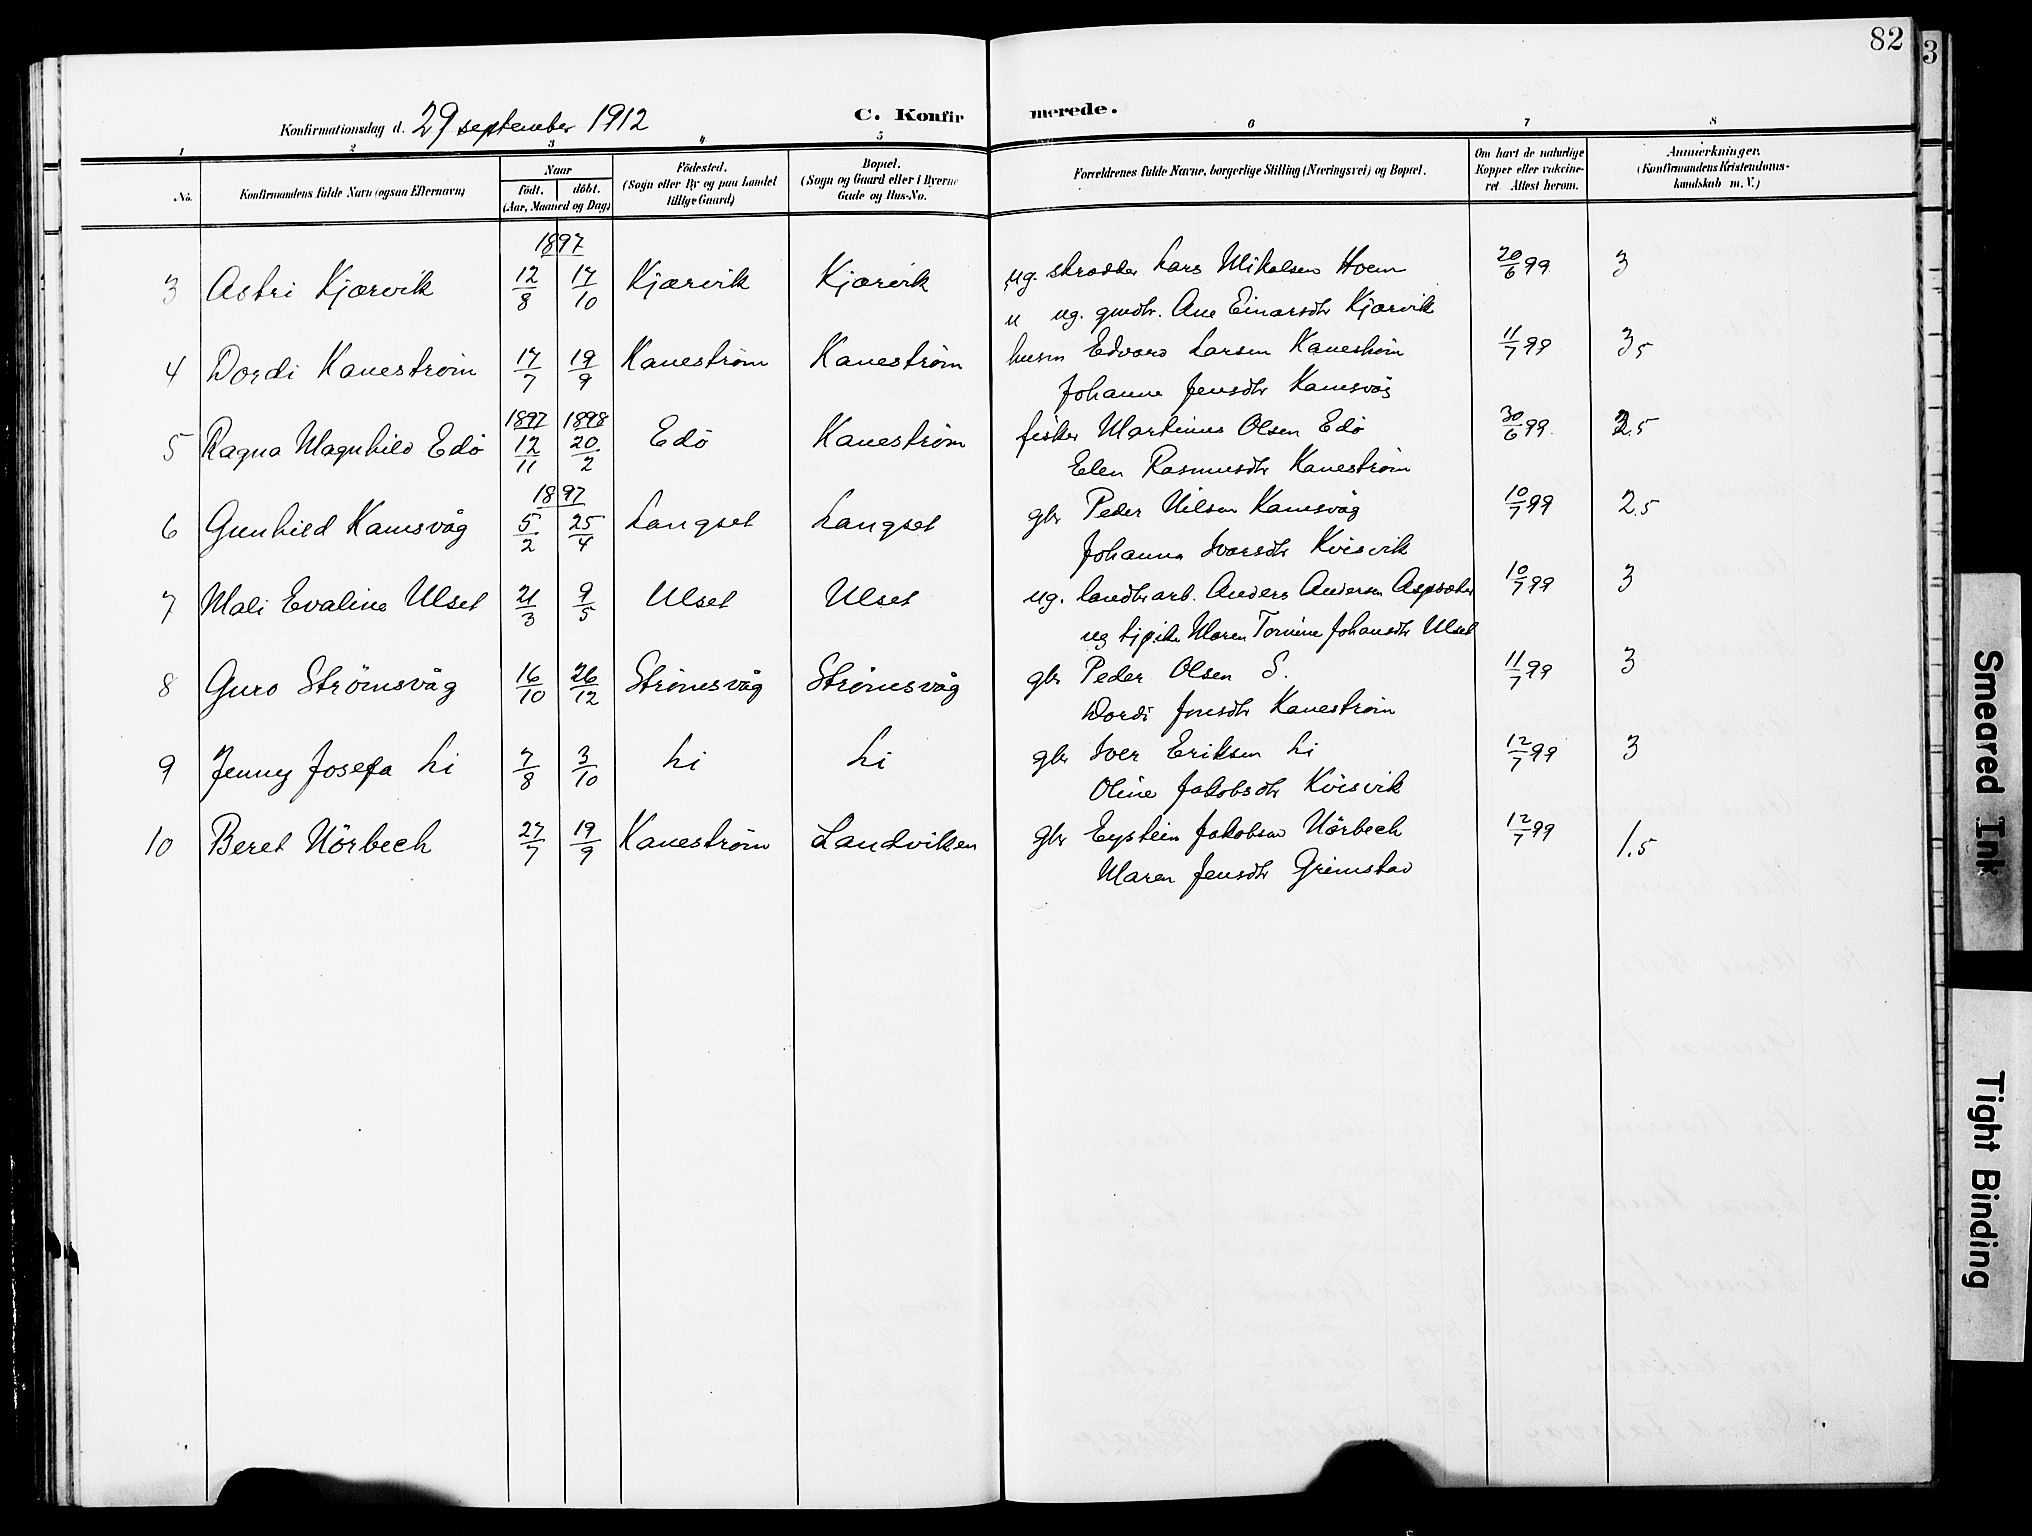 82
3
Konfirmationsdag d. 29 september 1912 C. Konfirmerede.
1 2 3 4 5 6 7 8
No. Konfirmandens fulde Navn (ogsaa Efternavn) Naar født. døbt. (Aar, Maaned og Dag) Fødested. (Sogn eller By og paa Landet tillige Gaard) Bopæl. (Sogn og Gaard eller i Byerne Gade og Hus-No. Forældrenes fulde Navne, borgerlige Stilling (Næringsvei) og Bopæl. Om havt de naturlige Kopper eller vakcineret Attest herom. Anmerkninger. (Konfirmandens Kristendomskundskab m. V.)
1897
3 Astri Kjørvik 12/8 17/10 Kjørvik Kjørvik ug. skrædder Lars Mikalsen Hoem 20/6 99 3
u ug. gmdtr. Ane Einarsdtr Kjørvik
4 Dordi Kanestrøm 17/7 19/9 Kanestrøm Kanestrøm husm Edvard Larsen Kanestrøm 11/7 99 3,5
Johanna Jensdtr Kamsvåg
1897 1898
5 Ragna Magnhild Edö 12/11 20/2 Edö Kanestrøm fisker Martinus Olsen Edö 30/6 99. 2.5
Elen Rasmusdtr Kanestrøm
1897
6 Gunhild Kamsvåg 5/2 25/4 Langset Langset gbr Peder Nilsen Kamsvåg 10/7 99 2.5
Johanna Ivarsdtr Kvisvik
7 Mali Evaline Ulset 21/3 9/5 Ulset Ulset ug. landbrarb. Anders Andersen Aspsæter 10/7 99 3
ug tjpike Maren Tomine Johansdtr Ulset
8 Guro Strömsvåg 16/10 26/12 Strømsvåg Strømsvåg gbr Peder Olsen S. 11/7 99 3
Dordi Jonsdtr Kanestrøm
9 Jenny Josefa Li 7/8 3/10 Li Li gbr Iver Eriksen Li 12/7 99 3
Oline Jakobsdtr Kvisvik
10 Beret Nörbech 27/7 19/9 Kanestrøm Landviksen gbr Eystein Jakobsen Nörbech 12/7 99 1.5
Maren Jensdtr Grimstad
Smeared Ink
Tight Binding